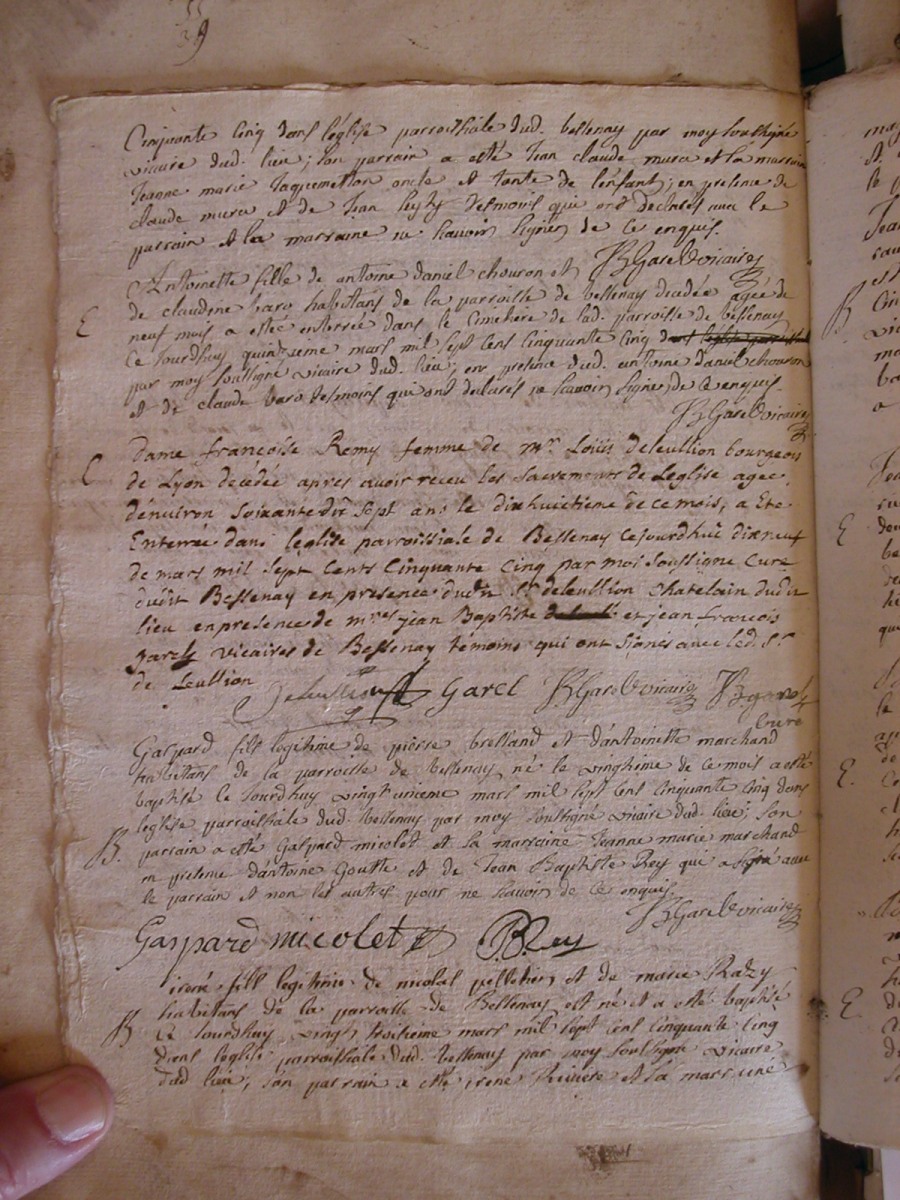 Cinquante Cinq dans l'église parroissiale dud. bessenay par moy soussigné
vicaire dud. lieu ; son parrain a esté Jean claude mura et la marraine
Jeanne marie Jaquemetton oncle et tante de l'enfant ; en presence de
claude mura et de Jean tesmoins qui ont declarés avec le
parrain et la marraine ne scavoir signer de ce enquis.
JBGarel vicaire
Antoinette fille de antoine daniel chouron et
E
de claudine varo habitans de la parroisse de bessenay decedée agée de
neuf mois a estée enterrée dans le cimetiere de lad. parroisse de bessenay
ce Jourdhuy quinzieme mars mil sept cens cinquante cinq
par moy soussigné vicaire dud. lieu ; en presence dud. antoine daniel chouron
et de claude varo tesmoins qui ont declarés ne scavoir signer de ce enquis.
JBGarel vicaire
C
Dame françoise Remy femme de mr. Louis deleullion bourgeois
de Lyon decédée apres avoir receu les Sacrements de Leglise agee
denviron Soixante dix Sept ans le dixhuitieme de ce mois, a Ete
Enterrée dans leglise parroissiale de Bessenay cejourdhui dixneuf
de mars mil Sept Cents Cinquante Cinq par moi Soussigné Curé
dudit Bessenay en presence dudit Sr. deleullion Chatelain dudit
lieu en presence de mres jean Baptiste et jean françois
garels vicaires de Bessenay témoins qui ont Signés avec led. Sr.
de Leullion
Deleullion Garel JBGarel vicaire
Curé
Gaspard fils legitime de pierre brelland et dantoinette marchand
habitans de la parroisse de bessenay né le vingtieme de ce mois a esté
baptisé ce Jourdhuy vingt unieme mars mil sept cent cinquante cinq dans
leglise parroissiale dud. bessenay par moy soussigné vicaire dud. lieu ; son
B.
parrain a esté Gaspard micolet et sa marraine Jeanne marie marchand
en presence dantoine Goutte et de Jean Baptiste Rey qui a signé avec
le parrain et non les autres pour ne scavoir de ce enquis
JBGarel vicaire
Gaspard micolet JBRey
irené fils legitime de nicolas pelletier et de marie Razy
habitans de la parroisse de Bessenay est né et a esté baptisé
B
ce Jourdhuy vingt troisieme mars mil sept cent cinquante cinq
dans leglise parroissiale dud. bessenay par moy soussigné vicaire
dud lieu, son parrain a esté irené et sa marraine